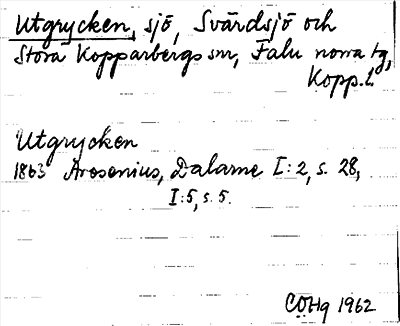 Utgrycken, sjö, Svärdsjö och
Stora Kopparbergs snr, Falu norra tg,
Kopp. l.
Utgrycken
1863 Arosenius, Dalarne I:2, s. 28,
I:5, s. 5.
CÖHg 1962